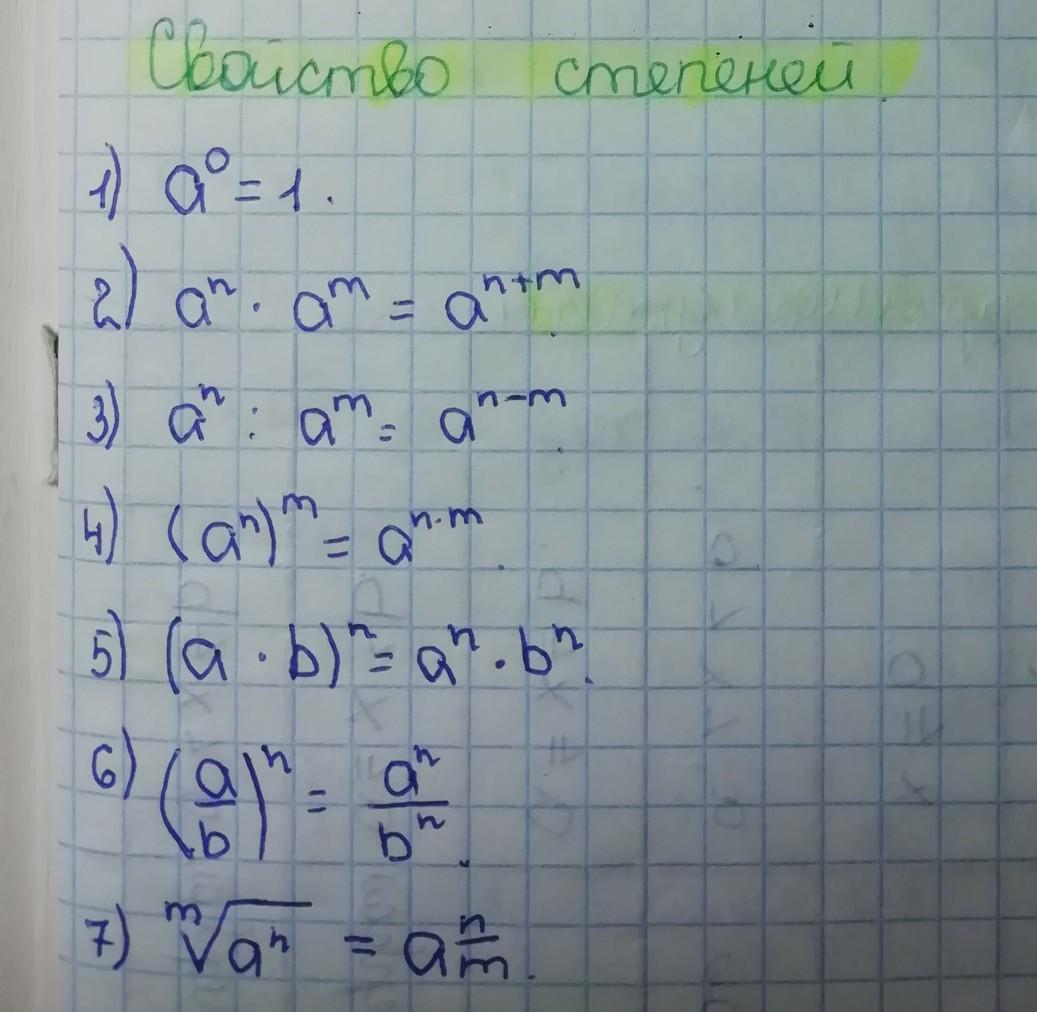 Свойство степеней.
1) a⁰ = 1.
2) aⁿ · aᵐ = aⁿ⁺ᵐ.
3) aⁿ : aᵐ = aⁿ⁻ᵐ.
4) (aⁿ)ᵐ = a^(n·m).
5) (a · b)ⁿ = aⁿ · bⁿ.
6) (a/b)ⁿ = aⁿ/bⁿ.
7) ᵐ√aⁿ = a n/m.